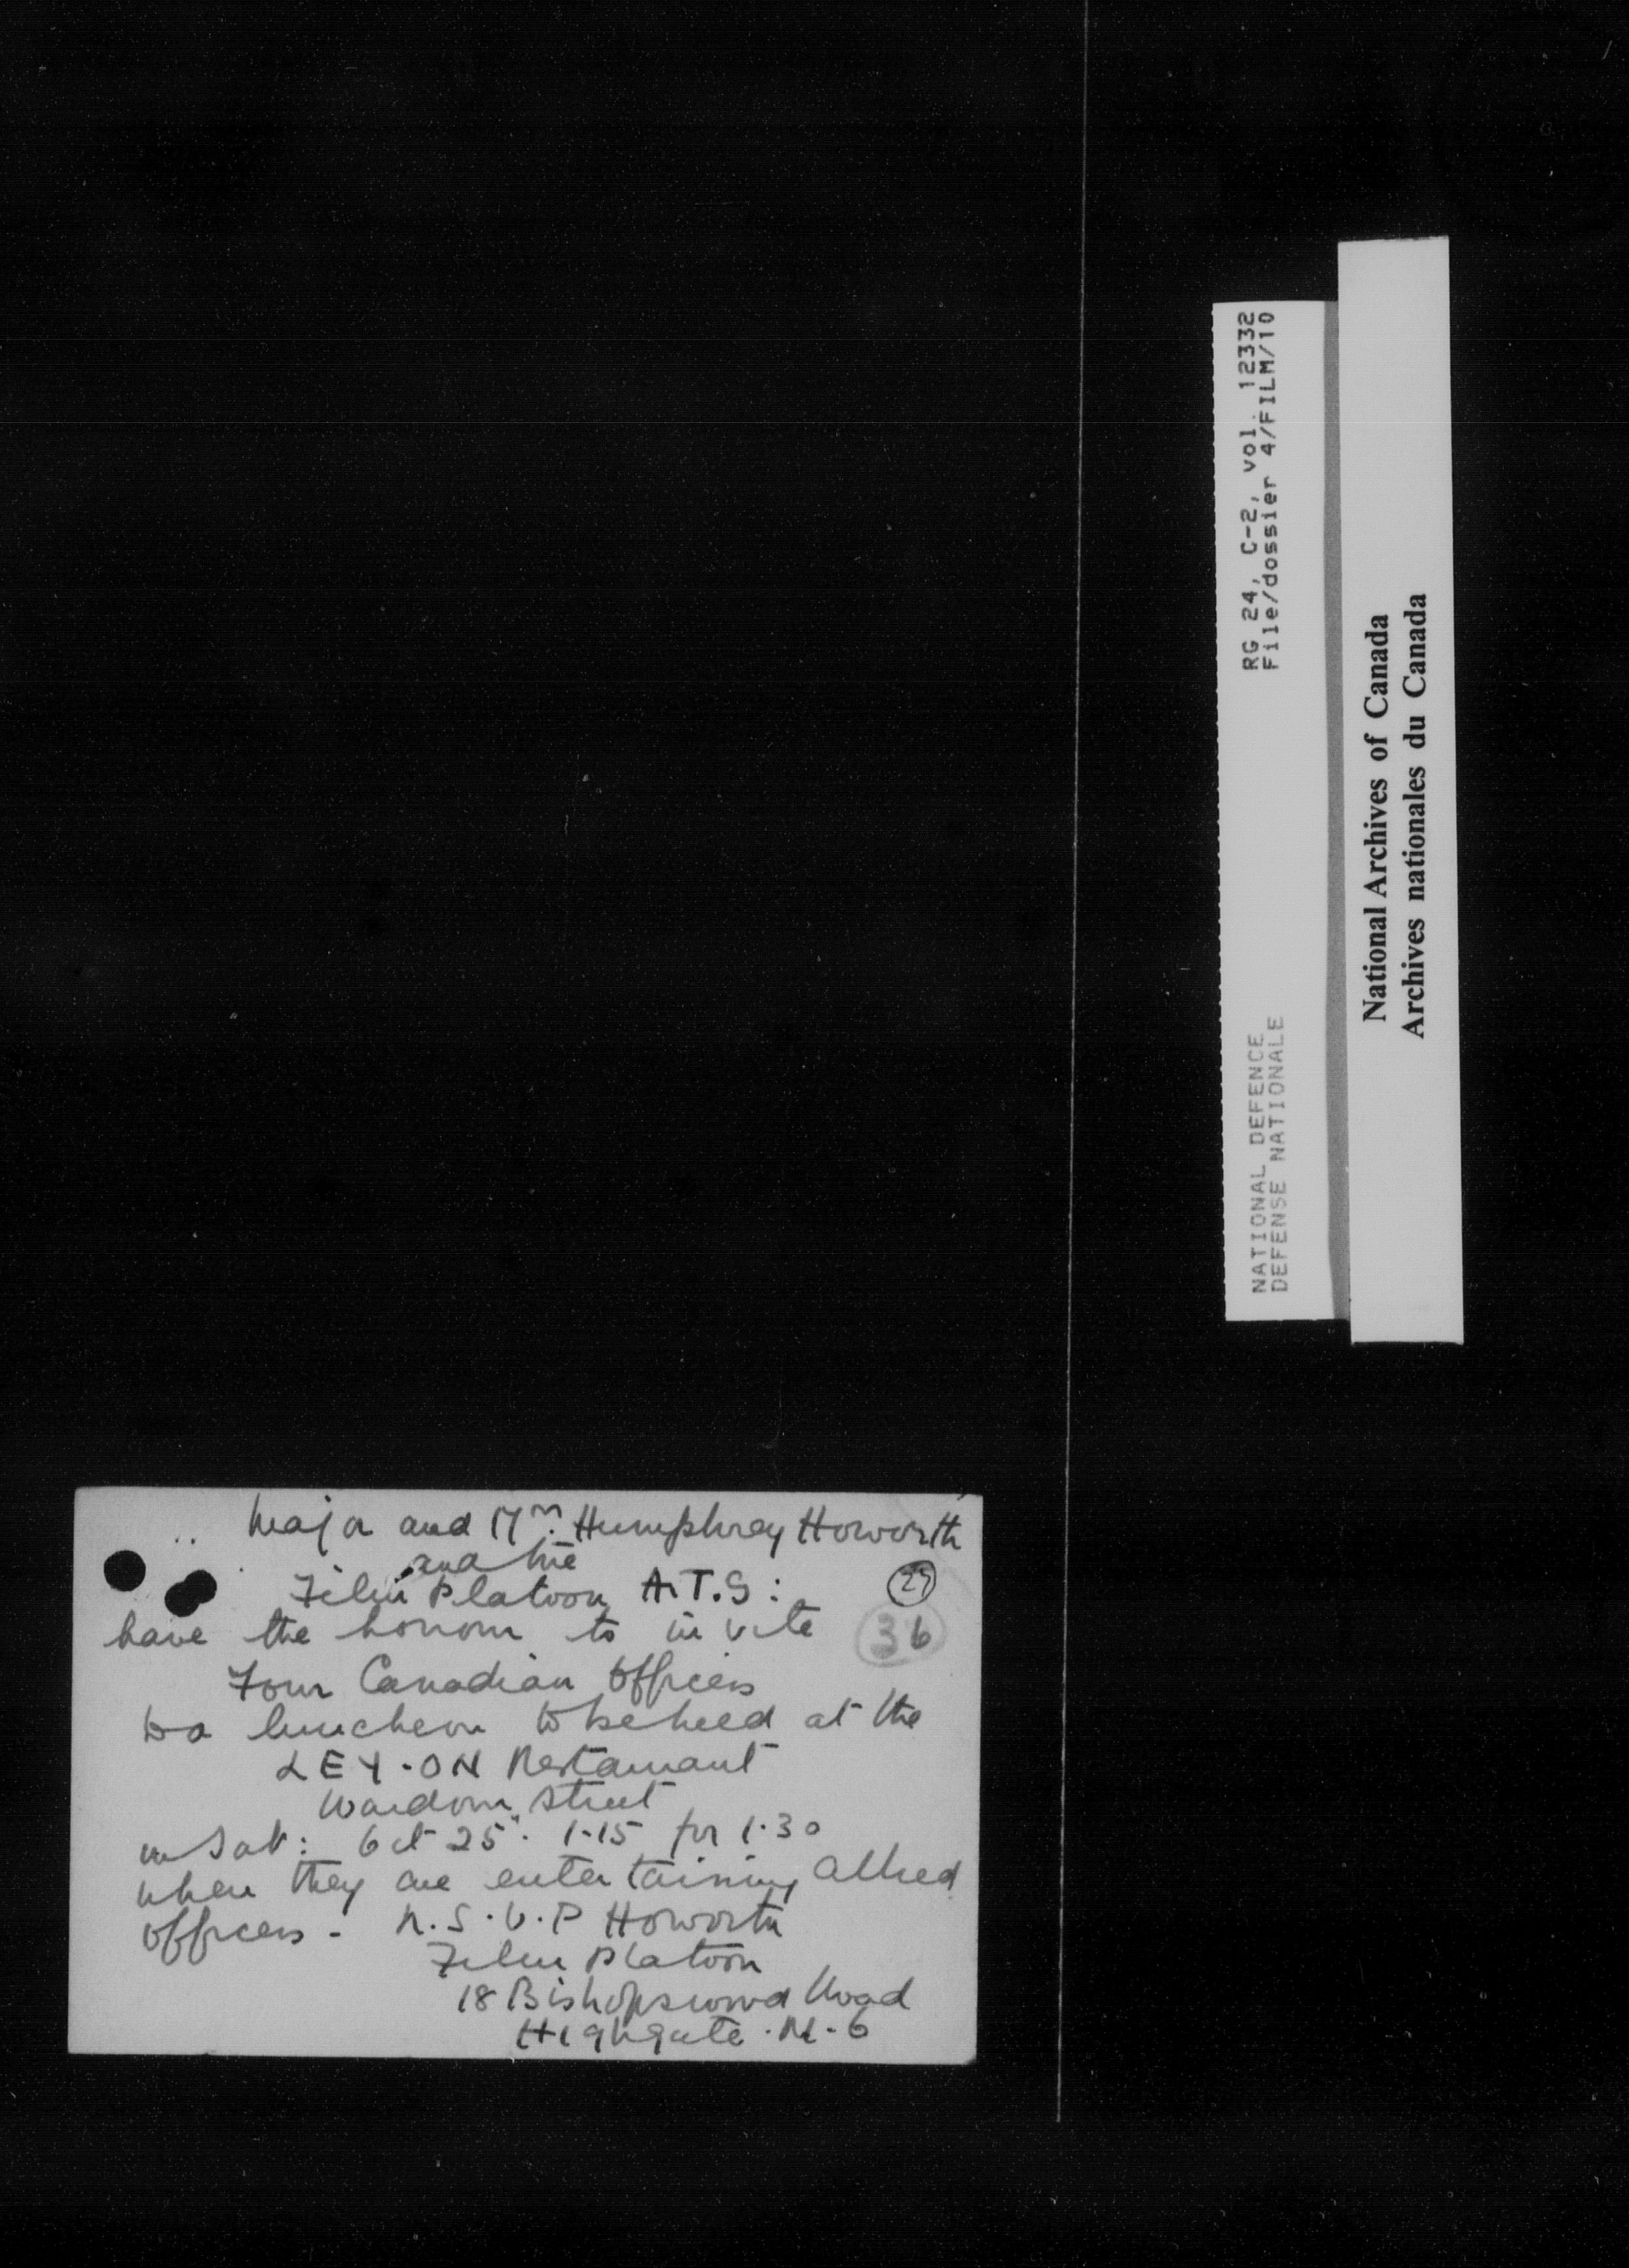 Major and Mrs. Humphrey Howorth
and the
Film Platoon A.T.S:
27
have the honour to invite
36
Four Canadian Officers
to a luncheon to be held at the
LEY-ON Restaurant
Wardour Street
on Sat: Oct 25". 1.15 for 1.30
when they are entertaining Allied
officers - R.S.V.P Howorth
Film Platoon
18 Bishopswood Road
Highgate. N.6
RG 24, C-2, vol. 12332
File/dossier 4/FILM/10
NATIONAL DEFENCE
DEFENSE NATIONALE
National Archives of Canada
Archives nationales du Canada